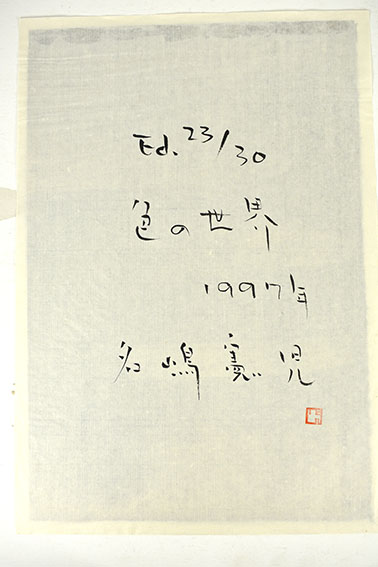 Ed. 23/30
色の世界
1997年
名嶋憲児